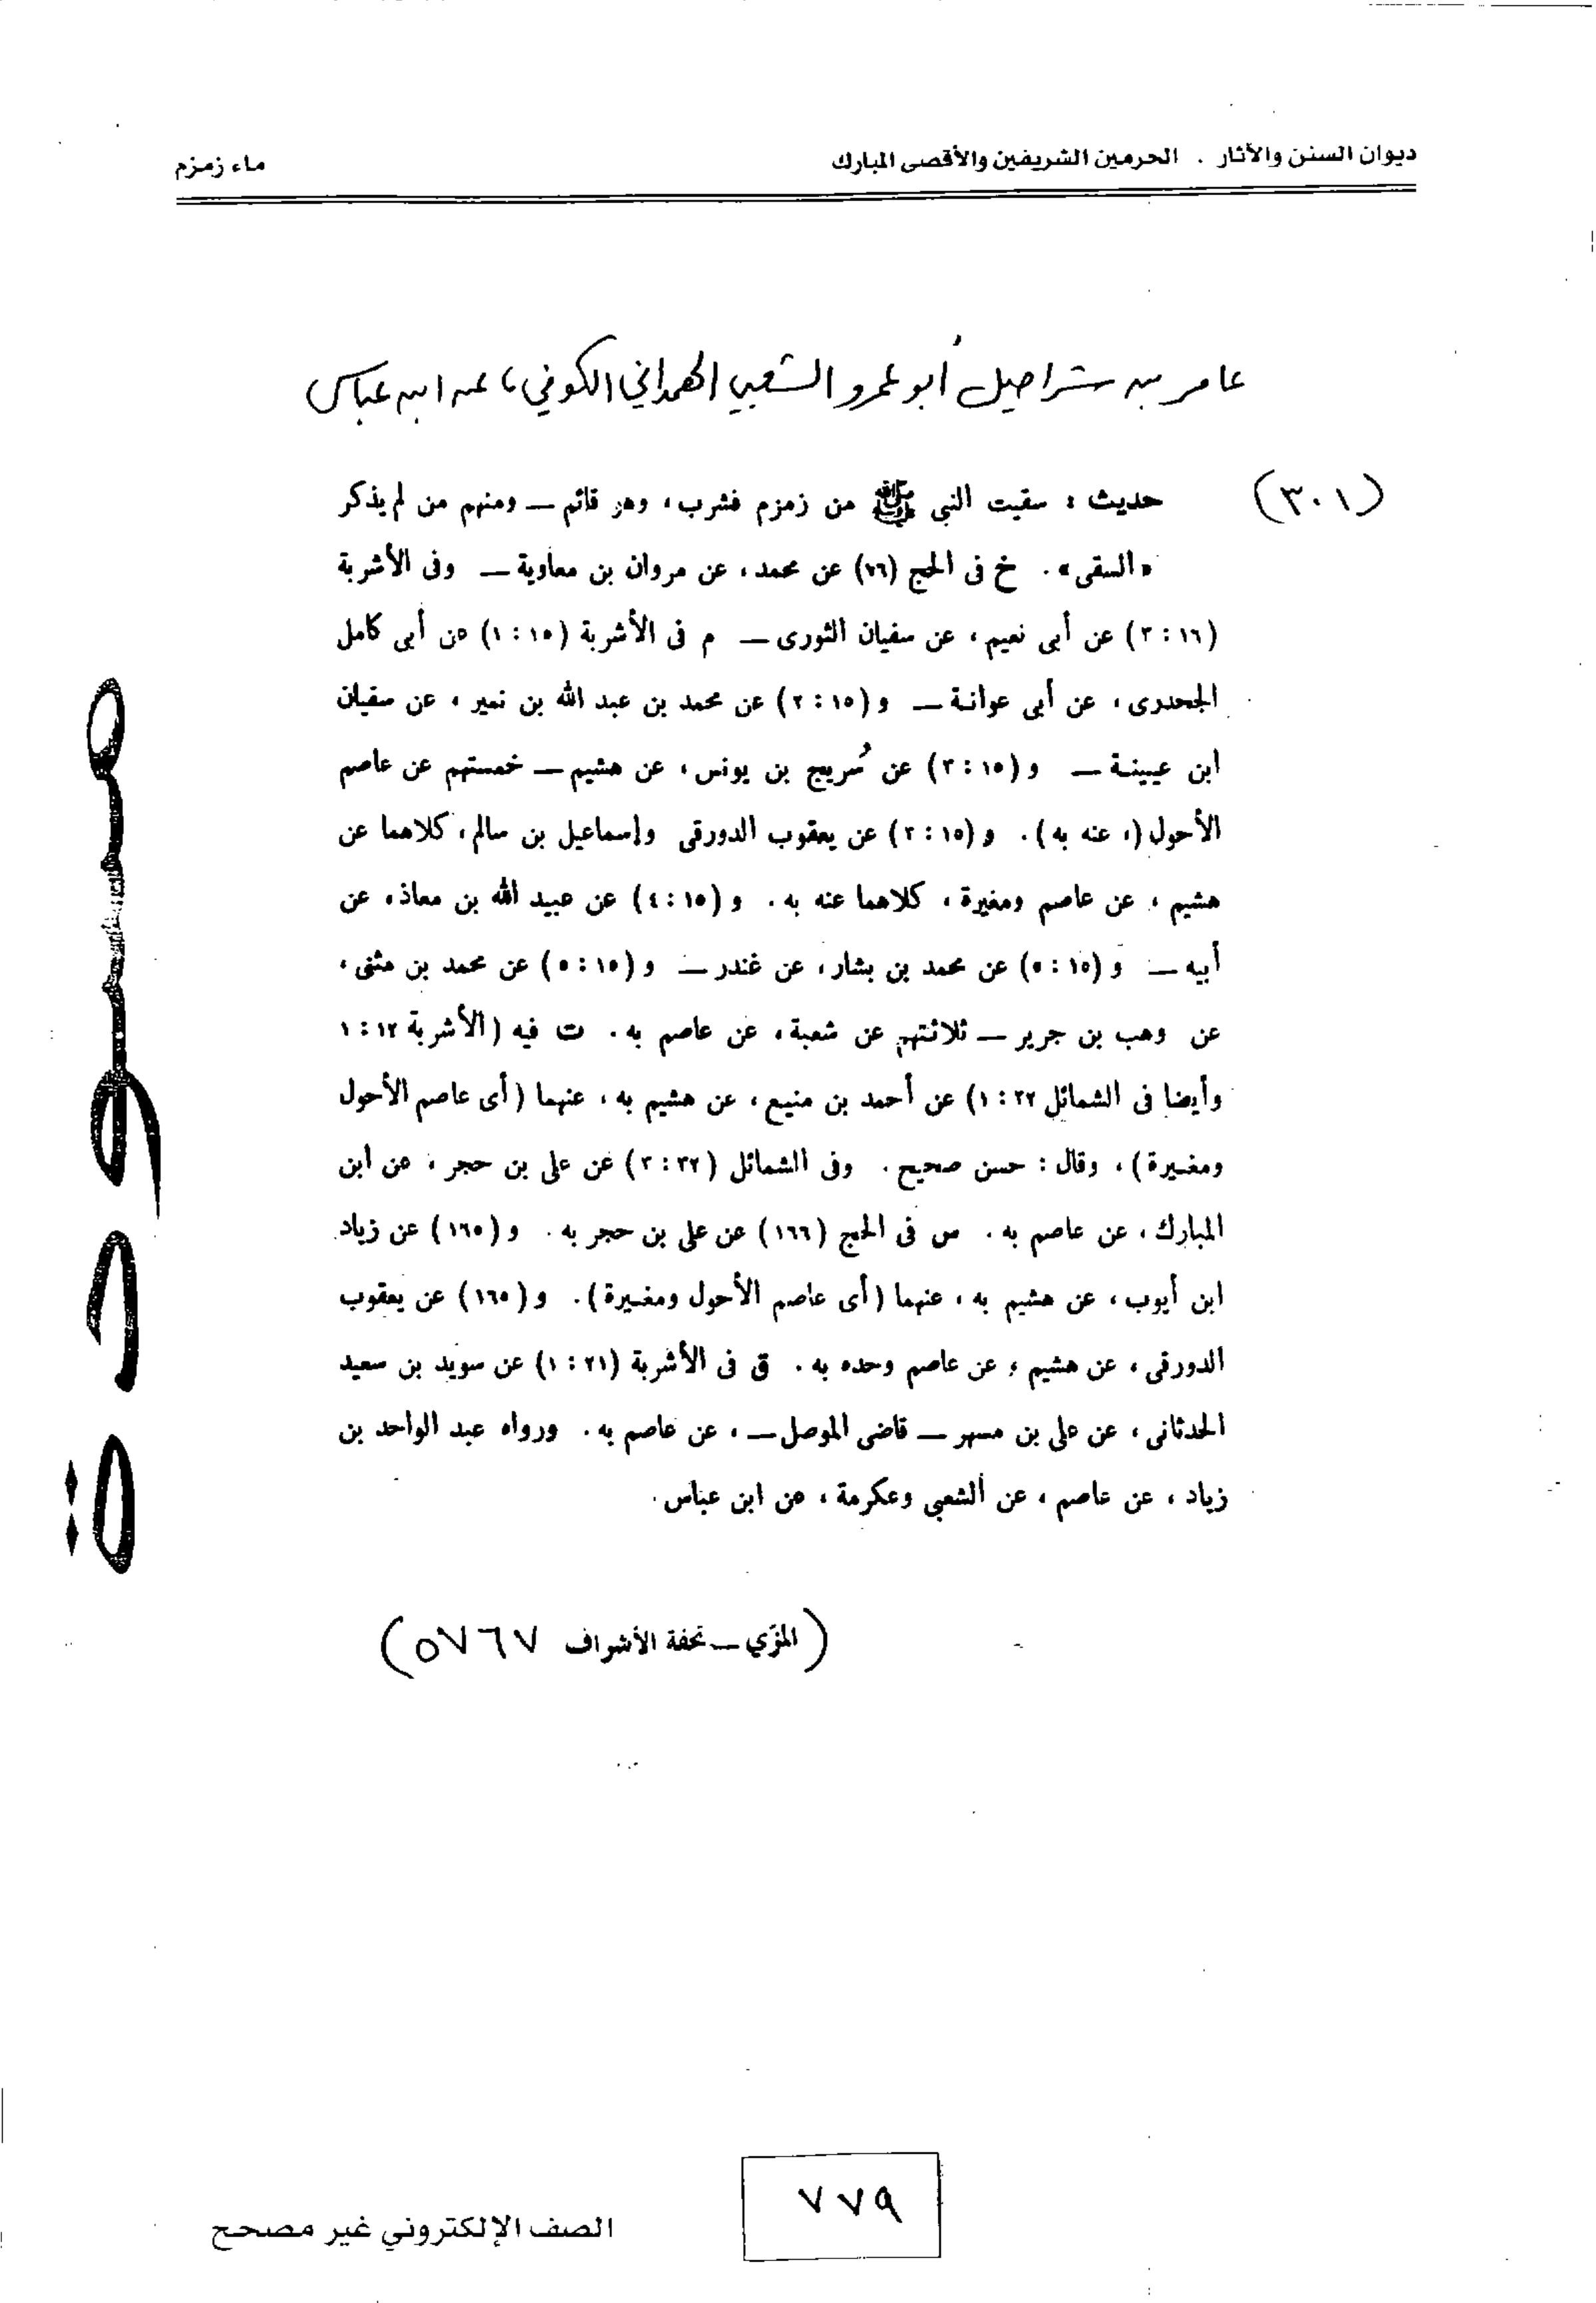 ديوان السنن والآثار . الحرمين الشريفين والأقصى المبارك
ماء زمزم
عامر بن شراحيل أبو عمرو الشعبي الهمداني الكوفي، عن ابن عباس
(٣٠١) حديث : سقيت النبى ﷺ من زمزم فشرب، وهو قائم — ومنهم من لم يذكر
«السقى». خ فى الحج (٧٦) عن محمد، عن مروان بن معاوية — وفى الأشربة
(١٦ : ٣) عن أبى نعيم، عن سفيان الثورى — م فى الأشربة (١٥ : ١) عن أبى كامل
الجحدرى، عن أبى عوانة — و (١٥ : ٢) عن محمد بن عبد الله بن نمير، عن سفيان
ابن عيينة — و (١٥ : ٣) عن سُريج بن يونس، عن هشيم — خمستهم عن عاصم
الأحول (، عنه به). و (١٥ : ٣) عن يعقوب الدورقى وإسماعيل بن سالم، كلاهما عن
هشيم، عن عاصم ومغيرة، كلاهما عنه به. و (١٥ : ٤) عن عبيد الله بن معاذ، عن
أبيه — و (١٥ : ٥) عن محمد بن بشار، عن غندر — و (١٥ : ٥) عن محمد بن مثنى،
عن وهب بن جرير — ثلاثتهم عن شعبة، عن عاصم به. ت فيه (الأشربة ١٢ : ١
وأيضا فى الشمائل ٣٢ : ١) عن أحمد بن منيع، عن هشيم به، عنهما (أى عاصم الأحول
ومغيرة)، وقال : حسن صحيح. وفى الشمائل (٣٢ : ٣) عن على بن حجر، عن ابن
المبارك، عن عاصم به. س فى الحج (١٦٦) عن على بن حجر به. و (١٦٥) عن زياد
ابن أيوب، عن هشيم به، عنهما (أى عاصم الأحول ومغيرة). و (١٦٥) عن يعقوب
الدورقى، عن هشيم، عن عاصم وحده به. ق فى الأشربة (٢١ : ١) عن سويد بن سعيد
الحدثانى، عن على بن مسهر — قاضى الموصل —، عن عاصم به. ورواه عبد الواحد بن
زياد، عن عاصم، عن الشعبي وعكرمة، عن ابن عباس.
(المزّي — تحفة الأشراف ٥٧٦٧)
مسودة :
٧٧٩
الصف الإلكتروني غير مصحح